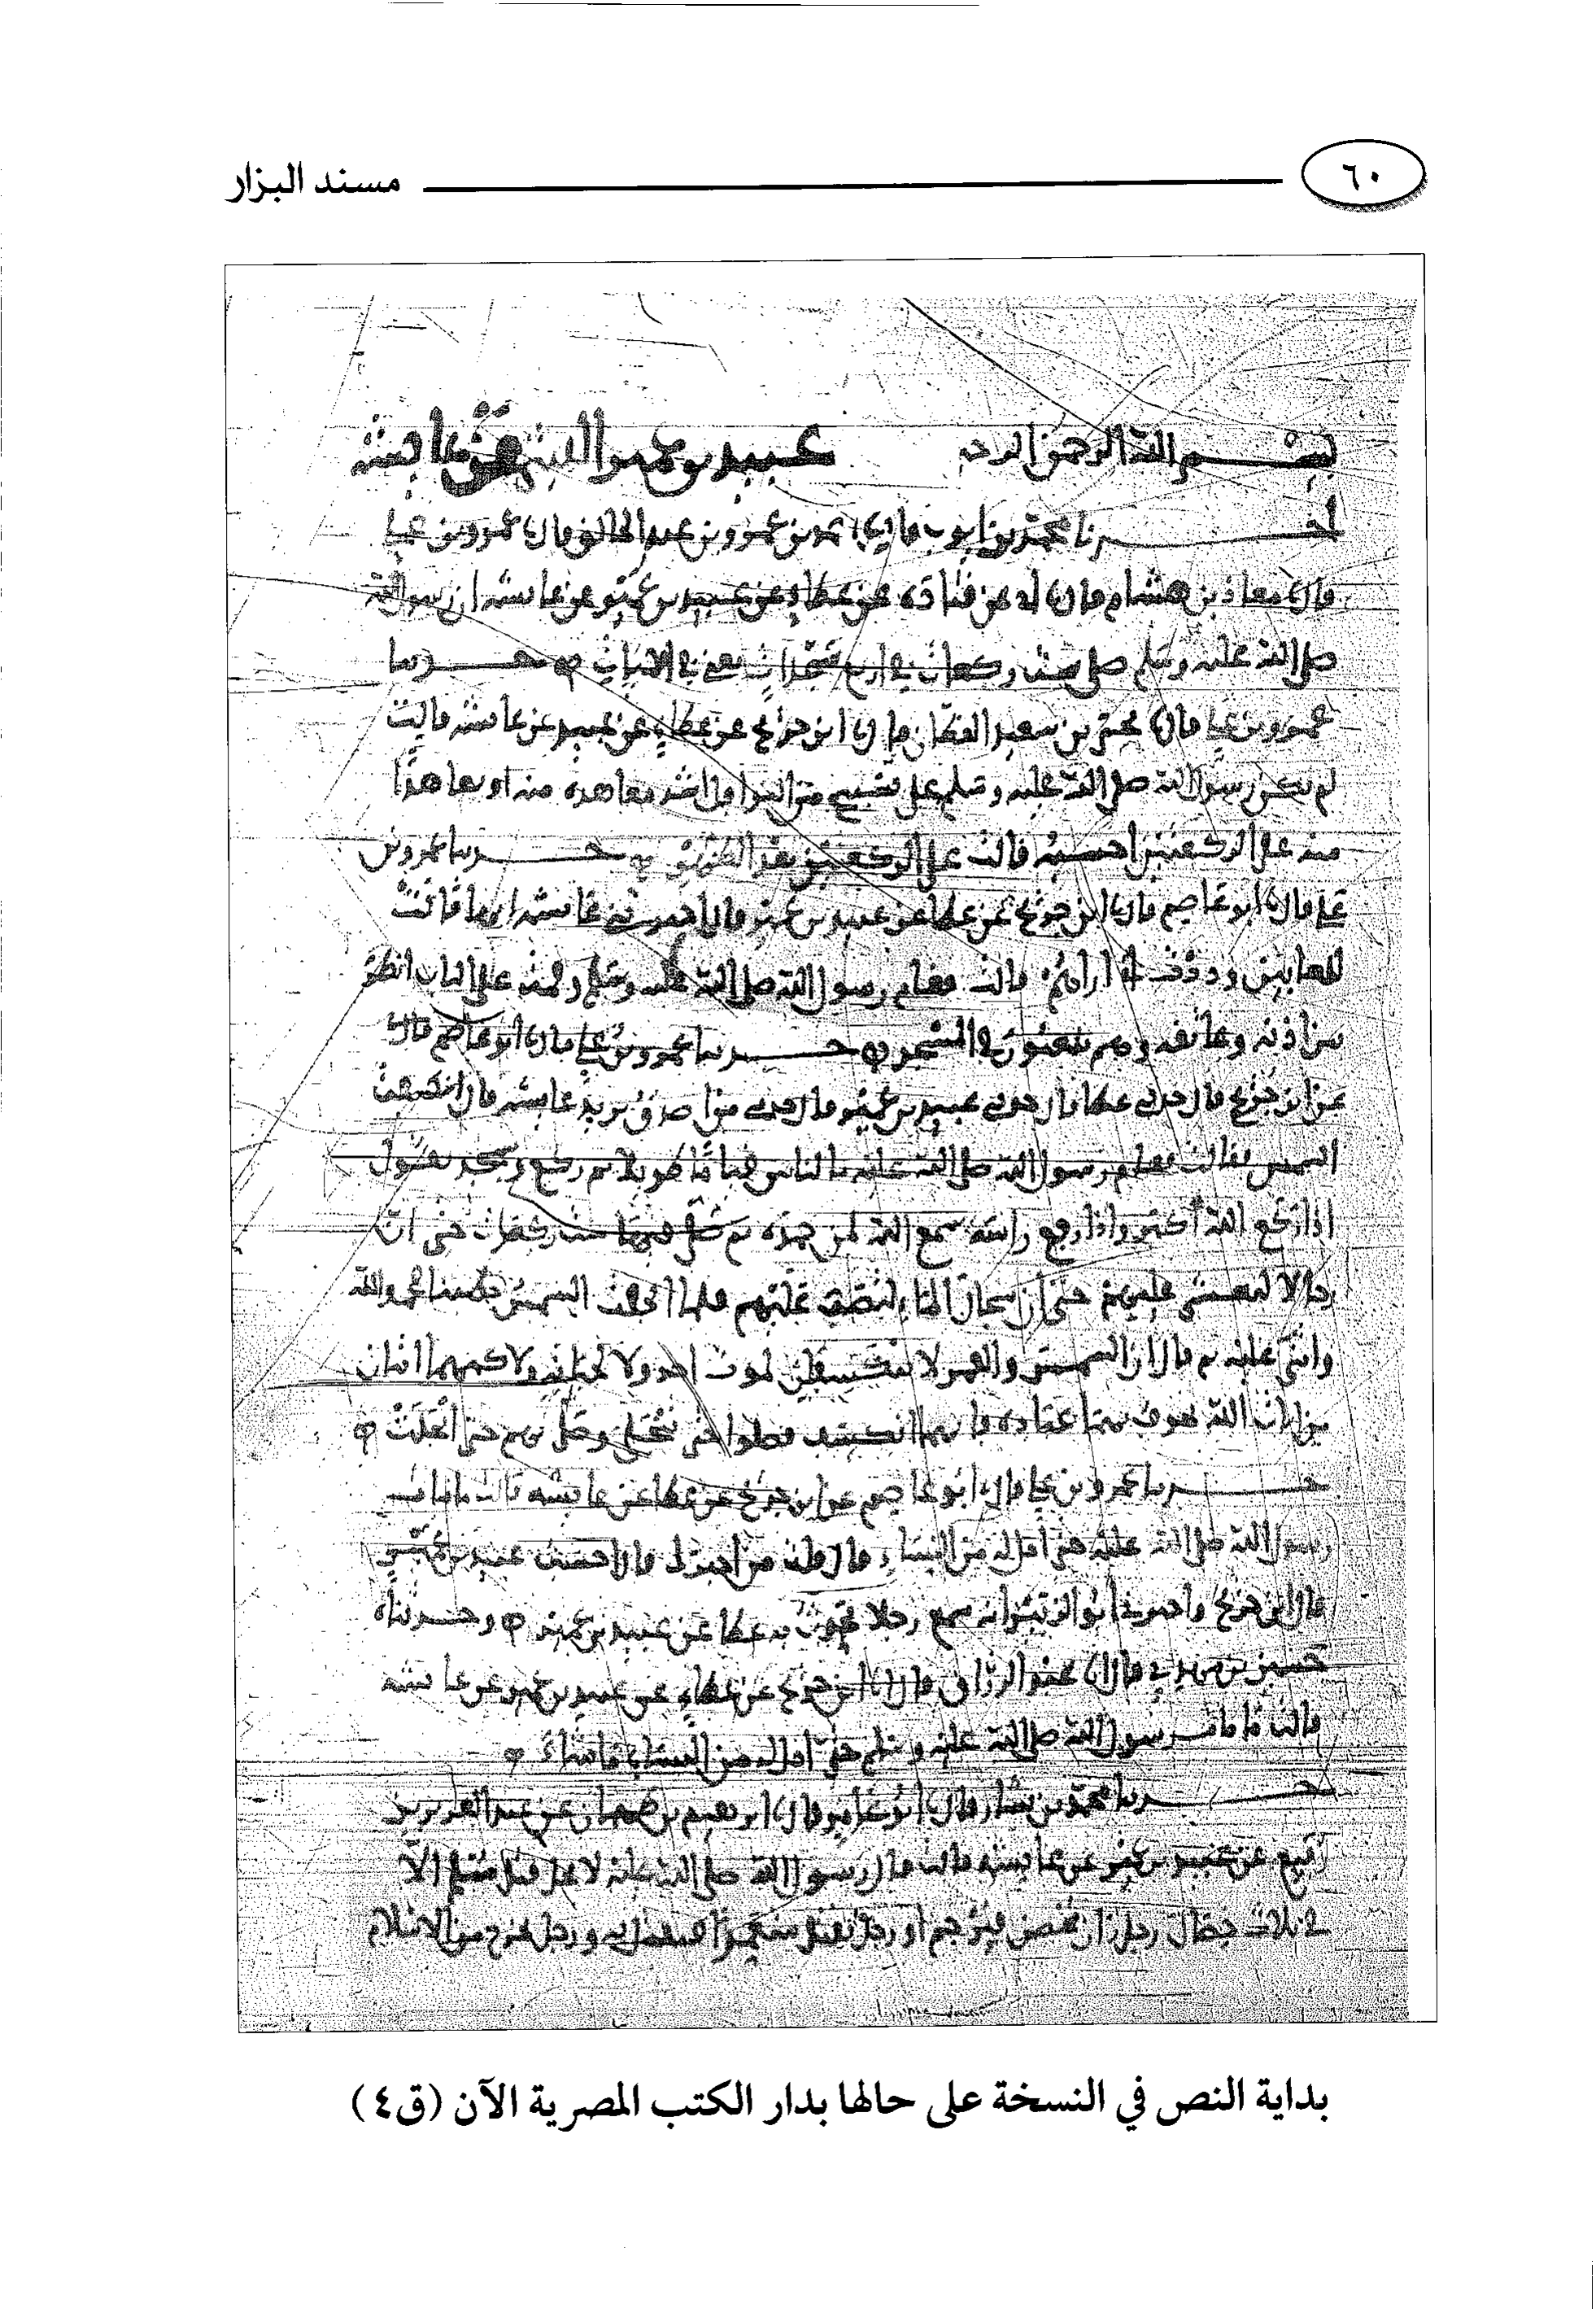 مسند البزار ٦٠
بسم الله الرحمن الرحيم عبيد بن عمير الليثي عن عايشة
محمد بن أيوب قال عمرو بن عبد الخالق قال عمرو بن علي
قال معاذ بن هشام قال أبي عن قتادة عن عطاء عن عبيد بن عمير عن عايشة ان رسول الله
صلى الله عليه وسلم صلى ست ركعات في اربع سجدات يعني في الايات
عمرو بن علي قال يحيى بن سعيد القطان قال ابن جريج عن عطاء عن عبيد عن عايشة قالت
لم يكن رسول الله صلى الله عليه وسلم على شيء من النوافل اشد معاهدة منه او تعاهدا
منه على الركعتين قالت على الركعتين عمرو بن
علي قال ابو عاصم قال ابن جريج عن عطا عن عبيد بن عمير قال اخبرتني عايشة انها قالت
للعابين وددت اراهم قالت فقام رسول الله صلى الله عليه وسلم وقمت على الباب انظر
بين اذنه وعاتقه وهم يلعبون في المسجد عمرو بن علي قال ابو عاصم قال
عن ابن جريج قال حدثني عطا قال حدثني عبيد بن عمير قال حدثني من اصدق يريد عايشة قال انكسفت
الشمس فقام رسول الله صلى الله عليه بالناس قياما طويلا ثم ركع وسجد يقول
اذا ركع الله اكبر واذا رفع راسه سمع الله لمن حمده ست ركعات حتى ان
رجالا ليغشى عليهم حتى ان سجال الماء ليصب عليهم الشمس فحمد الله
واثنى عليه ثم قال ان الشمس والقمر لا ينكسفان لموت احد ولا لحياته ولاكنهما ايتان
من ايات الله يخوف بهما عباده فصلوا حتى حتى انجلت
عمرو بن علي قال ابو عاصم عن ابن جريج عن عطا عن عايشة قالت ما مات
رسول الله صلى الله عليه حتى احل له من النساء قال قلت من اخبرك قال احسب عبيد بن عمير
قال ابن جريج واخبرني ابو الزبير انه سمع رجلا يحدث به عطا عن عبيد بن عمير وحدثناه
حسين بن مهدي قال عبد الرزاق قال ابن جريج عن عطاء عن عبيد بن عمير عن عايشة
قالت ما مات رسول الله صلى الله عليه وسلم حتى احل له من النساء ما شاء
محمد بن بشار قال ابو عامر قال ابراهيم بن طهمان عن عبد العزيز بن
رفيع عن عبيد بن عمير عن عايشة قالت قال رسول الله صلى الله عليه لا يحل قتل مسلم الا
في ثلاث خصال رجل زان محصن فيرجم او رجل يقتل متعمدا فيقتل به ورجل يخرج من الاسلام
بداية النص في النسخة على حالها بدار الكتب المصرية الآن (ق٤)